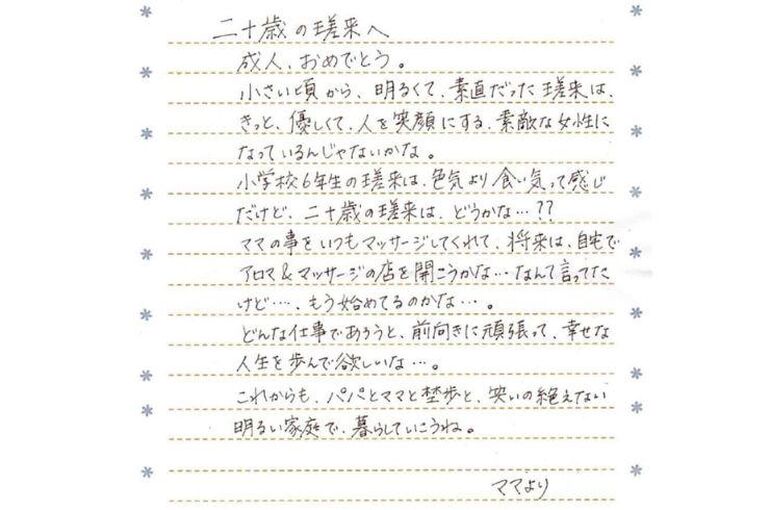 二十歳の瑳来へ
成人、おめでとう。
小さい頃から、明るくて、素直だった瑳来は、
きっと、優しくて、人を笑顔にする、素敵な女性に
なっているんじゃないかな。
小学校6年生の瑳来は、色気より食い気って感じ
だけど、二十歳の瑳来は、どうかな…??
ママの事をいつもマッサージしてくれて、将来は、自宅で
アロマ&マッサージの店を開こうかな…なんて言ってた
けど…、もう始めてるのかな…。
どんな仕事であろうと、前向きに頑張って、幸せな
人生を歩んで欲しいな…。
これからも、パパとママと埜歩と、笑いの絶えない
明るい家庭で、暮らしていこうね。
ママより